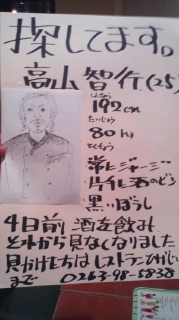 探してます。
高山 智行(25)
しんちょう
192cm
たいじゅう
80kg
とくちょう
常にジャージ
片手に酒のビン
黒いぼうし
4日前 酒を飲み
それから見なくなりました
見かけた方はレストラン
まで 0263-98-5838